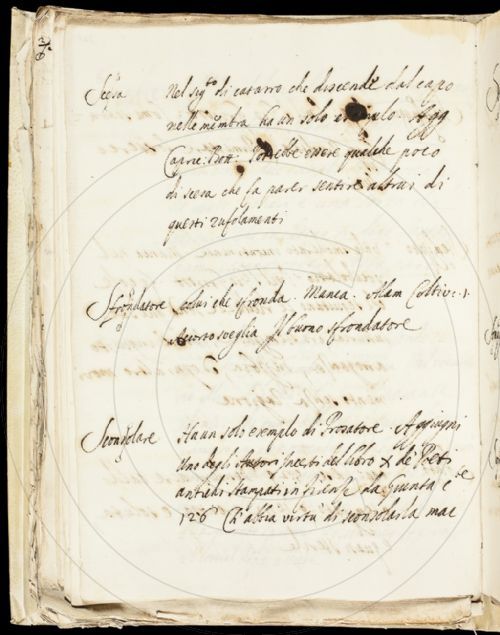 Scesa Nel sig.to di catarro che discende dal capo
nelle membra ha un solo esempio Agg
Capric: Bott: Potrebbe essere qualche poco
di scesa che fa parer sentire altrui di
questi zufolamenti
Sfrondatore colui che sfronda. Manca. Alam Coltiv: 1.
Accorto sveglia Il buono sfrondatore
Sconsolare Ha un solo esempio di Prosatore Aggiugni
Uno degli Autori del libro X de Poeti
antichi stampati in firense da giunta
126 Ch'abbia virtù di sconsolarla mae